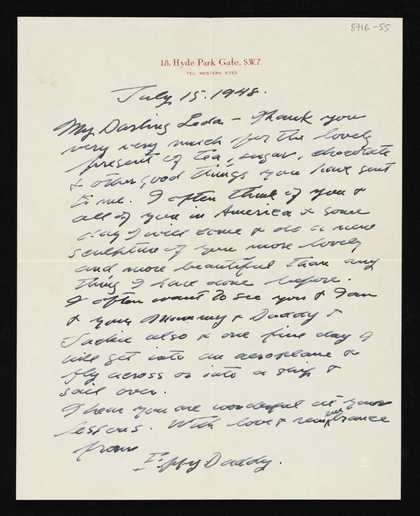 8716-55
18, Hyde Park Gate, S.W.7.
TEL. WESTERN
July 15. 1948.
My Darling Leda - Thank you
very very much for the lovely
present of tea, sugar, chocolate
& other good things you have sent
to me. I often think of you &
all of you in America & some
day I will come & do a new
sculpture of you more lovely
and more beautiful than any
thing I have done before.
I often want to see you & Ian
& your Mummy & Daddy &
Jackie also & one fine day I
will get into an aeroplane &
fly across or into a ship &
sail over.
I hear you are wonderful at your
lessons. With love & remembrance
from
Eppy Daddy.